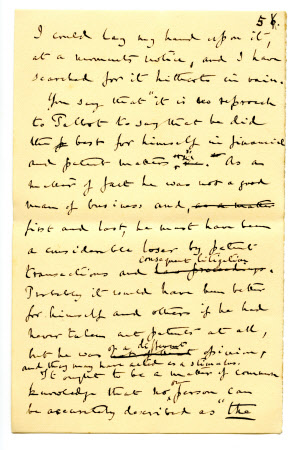 58.
I could lay my hand upon it,
at a moments notice, and I have
searched for it hitherto in vain.
You say that "it is no reproach
to Talbot to say that he did
the best for himself in financial
and patent matters &c." As an
matter of fact he was not a good
man of business and, as a matter
first and last, he must have been
a considerable loser by patent
consequent litigation
transactions and
Probably it would have been better
for himself and others if he had
never taken out patents at all,
of a different
but he was opinion,
and they may have acted as a stimulus.
It ought to be a matter of common
or
knowledge that no person can
be accurately described as "the